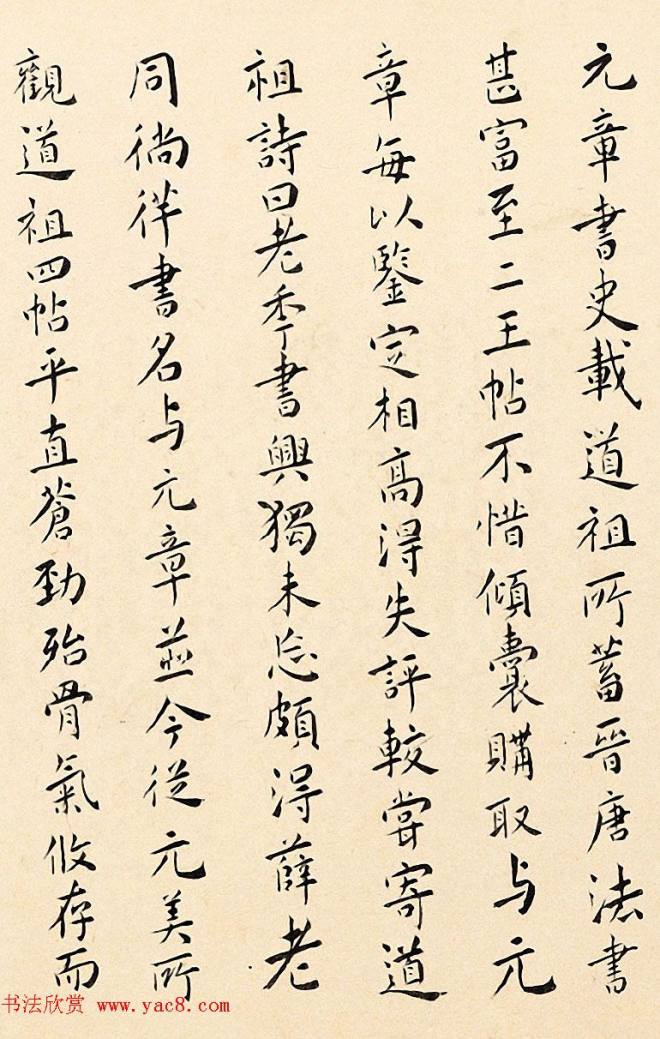 元章書史載道祖所蓄晉唐法書
甚富至二王帖不惜傾囊購取与元
章每以鑒定相高得失評較嘗寄道
祖詩曰老秊書興獨未忘頗得薛老
同徜徉書名与元章並今從元美所
觀道祖四帖平直蒼勁殆骨氣攸存而
书法欣赏 www.yac8.com